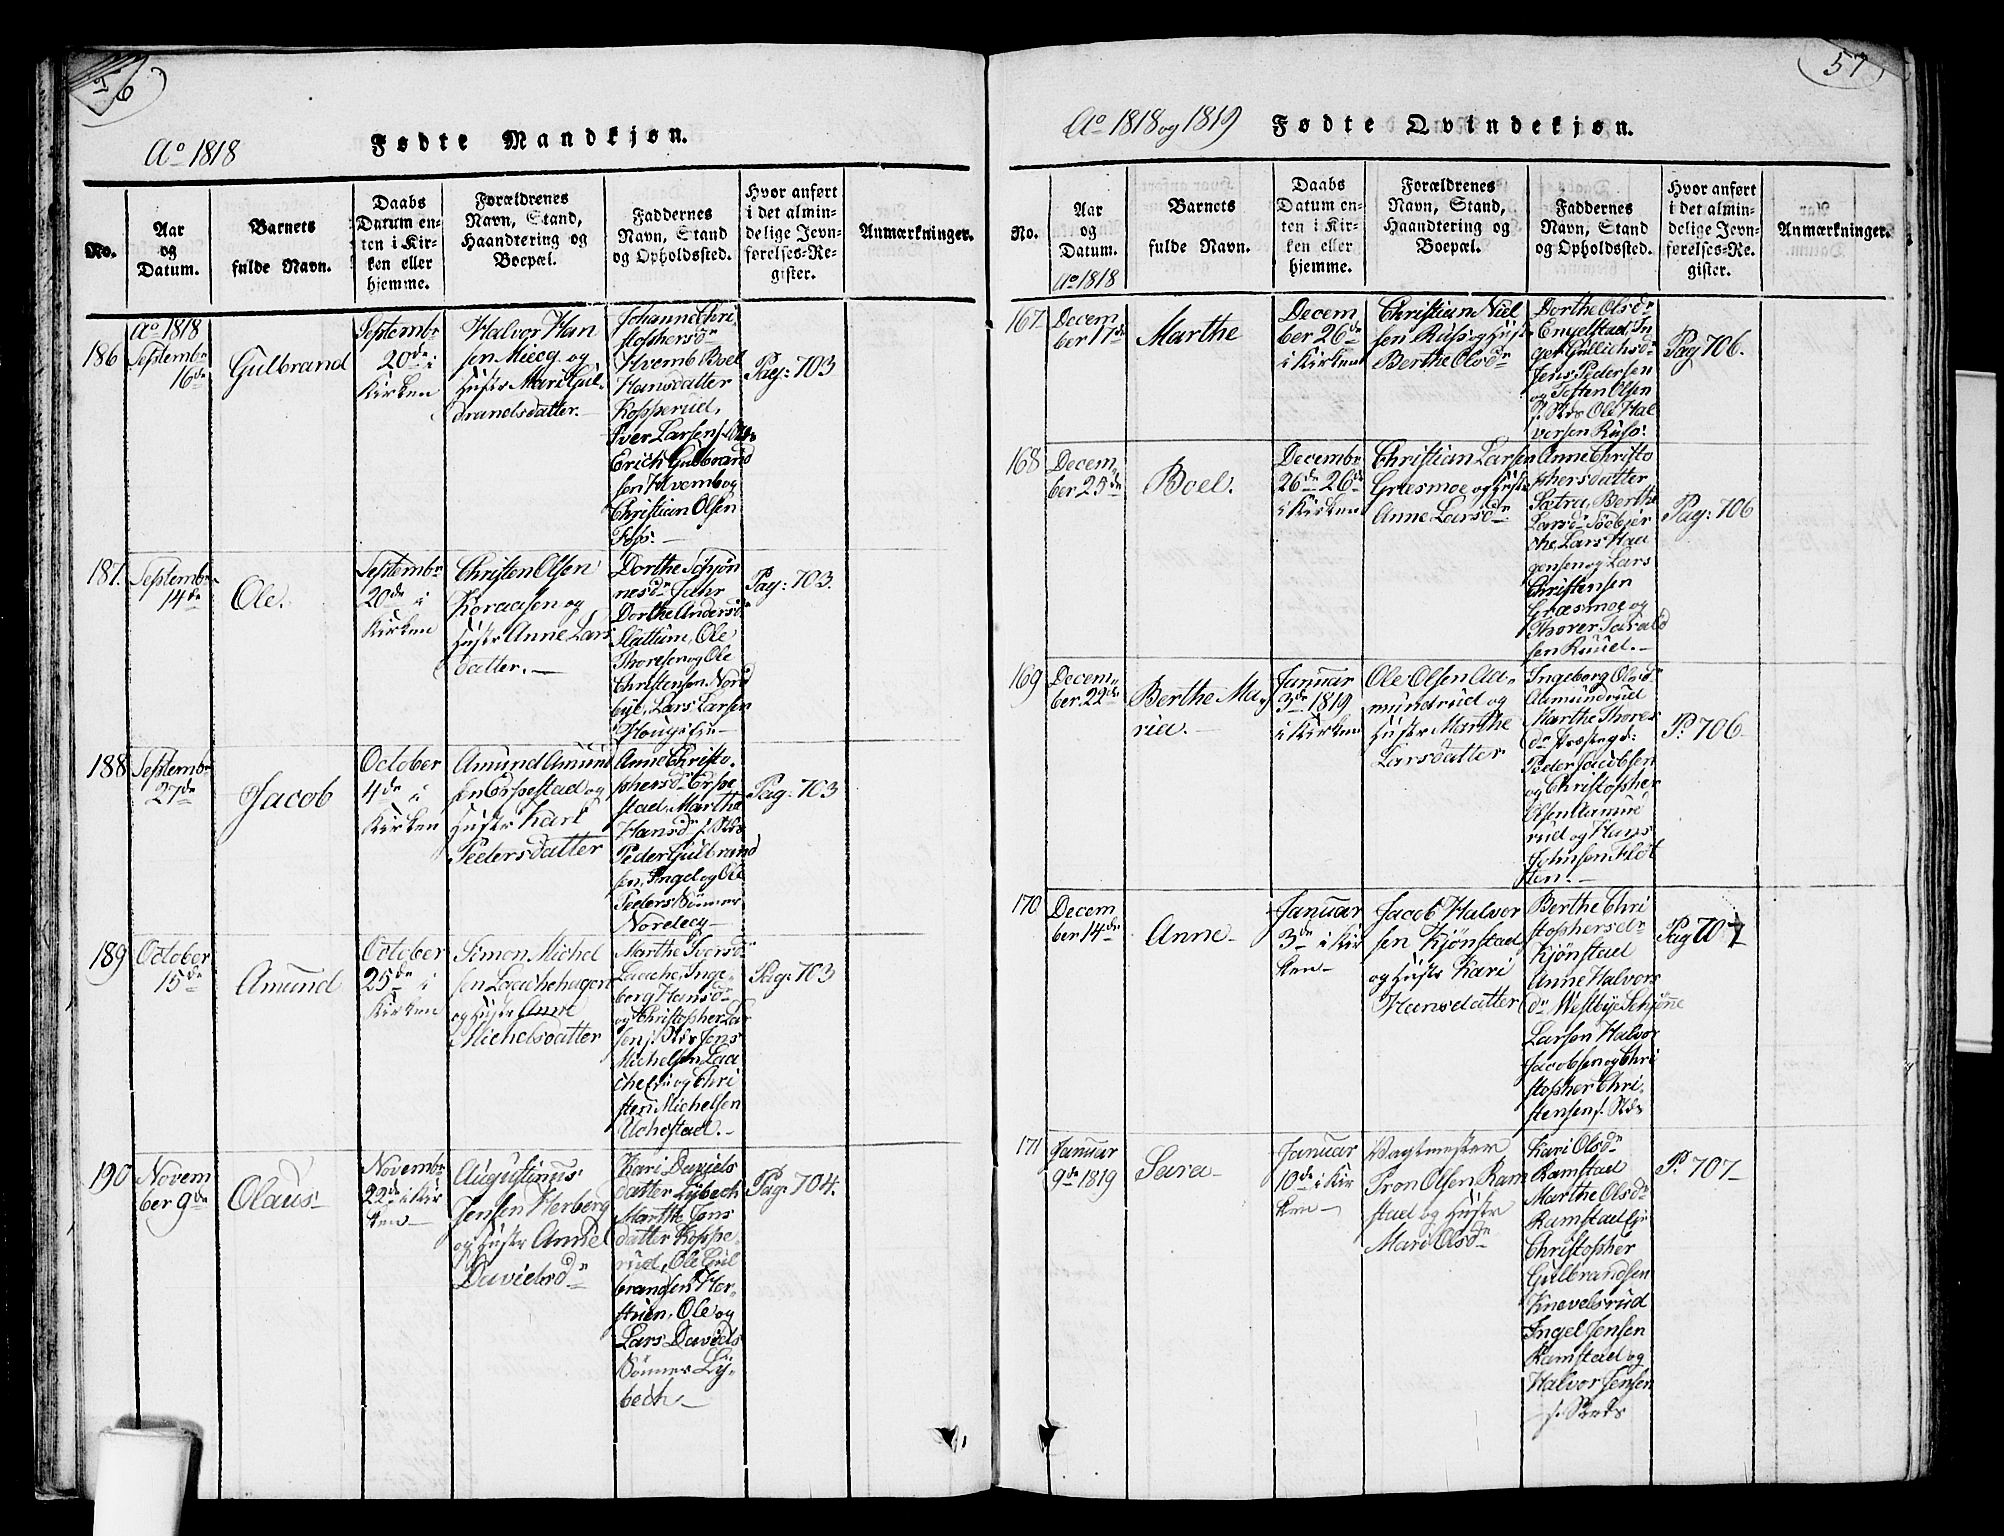 56
Aº 1818
Fødte Mandkjøn.
No.
Aar
og
Datum.
Barnets
fulde Navn.
Daabs
Datum en-
ten i Kir-
ken eller
hjemme.
Forældrenes
Navn, Stand,
Haandtering og
Boepæl.
Faddernes
Navn, Stand
og Opholdssted.
Hvor anført
i det almin-
delige Jevn-
førelses-Re-
gister.
Anmærkninger.
Aº 1818
186
Septembr
16de
Gulbrand
Septembr
20de i
Kirken
Halvor Han
sen Miecg og
Hustr Mari Gul
brandsdatter.
Johanne Chri
stophersdr
Hvemb Boel
Hansdatter
Kopperud,
Iver Larsen s. Steds
Erich Gulbrand
sen Hvemb og
Christian Olsen
Foss.
Pag: 703
187.
Septembr
14de
Ole.
Septembr
20de i
Kirken
Christen Olsen
Koraasen og
Hustr Anne Lars
datter.
Dorthe Schjøn
nesdr Fahr
Dorthe Andersdr
Slattum, Ole
Thoresen og Ole
Christensen Nord
bye, Lars Larsen
Pag: 703.
188
Septembr
27de
Jacob
October
4de i
Kirken
Amund Amund
sen Erpestad og
Hustr Kari
Pedersdatter
Anne Christo-
phersdr Erpe
stad, Marthe
Hansdr s. Steds
Peder Gulbrand
sen, Ingel og Ole
Peders Sønner
Nordecg
Pag: 703
189
October
15de
Amund
October
25de i
Kirken
Simon Michel
sen Laachehagen
og Hustr Anne
Michelsdatter
Marthe Iversdr
Laache, Inge-
berg Hansdr
og Christopher Lar
sen s. Steds Jens
Michelsen Laa
che og Chri
sten Michelsen
Uchestad.
Pag: 703
190
Novem
ber 9de
Olaus
Novembr
22de i Kir
ken
Augustinus
Jensen Herberg
og Hustr Anne
Davidsdr
Kari Davids
datter Lybech
Marthe Jens
datter Koppe
rud, Ole Gul
brandsen Her-
stuen, Ole og
Lars Davids
Sønner Ly-
bech
Pag: 704.
57
Aº 1818 og 1819
Fødte Qvindekjøn.
No.
Aar
og
Datum.
Aº 1818
Barnets
fulde Navn.
Daabs
Datum en-
ten i Kir-
ken eller
hjemme.
Forældrenes
Navn, Stand,
Haandtering og
Boepæl.
Faddernes
Navn, Stand
og Opholdssted.
Hvor anført
i det almin-
delige Jevn-
førelses-Re-
gister.
Anmærkninger.
167
Decem
ber 17de
Marthe
Decem
ber 26de
i Kirken
Christian Niel
sen Russ og Hustr
Berthe Olsdr
Dorthe Olsdr
Engelstad, In
ger Gullichsdr
Jens Pedersen
og Tosten Olsen
s. Steds Ole Hal
versen Russ.
Pag 706.
168
Decem
ber 25de
Boel.
Decembr
26de 26de
i Kirken
Christian Larsen
Græsmoe og Hustr
Anne Larsdr
Anne Christo
phersdatter
Sætra, Berthe
Larsdr Søebjer
che, Lars Haa
gensen og Lars
Christensen
Græsmoe og
Thorer Harald
sen Ruud.
Pag: 706
169
Decem
ber 22de
Berthe Ma
ria.
Januar
3de 1819
i Kirken
Ole Olsen Aa-
mundrud og
Hustr Marthe
Larsdatter
Ingeborg Olsdr
Aamundrud
Marthe Thores
dr
Peder Jacobsen
og Christopher
Olsen Aamund
rud og Hans
Johnsen Fløt
ten.
P. 706
170
Decem
ber 14de
Anne
Januar
3de i Kir
ken
Jacob Halvor
sen Kjønstad
og Hustr Kari
Hansdatter
Berthe Chri
stophersdr
Kjønstad
Anne Halvors
dr Westbye Schøne
Larsen Halvor
Jacobsen og Chri
stopher Chri-
stensen s. Steds
Pag 707
171
Januar
9de 1819
Sara
Januar
10de i Kir
ken
Vagtmester
Tron Olsen Ram
stad og Hustr
Mari Olsdr
Kari Olsdr
Ramstad
Marthe Olsdr
Ramstad Eje
Christopher
Gulbrandsen
Knevelsrud
Ingel Jensen
Ramstad og
Halvor Jensen
s. Steds
P. 707